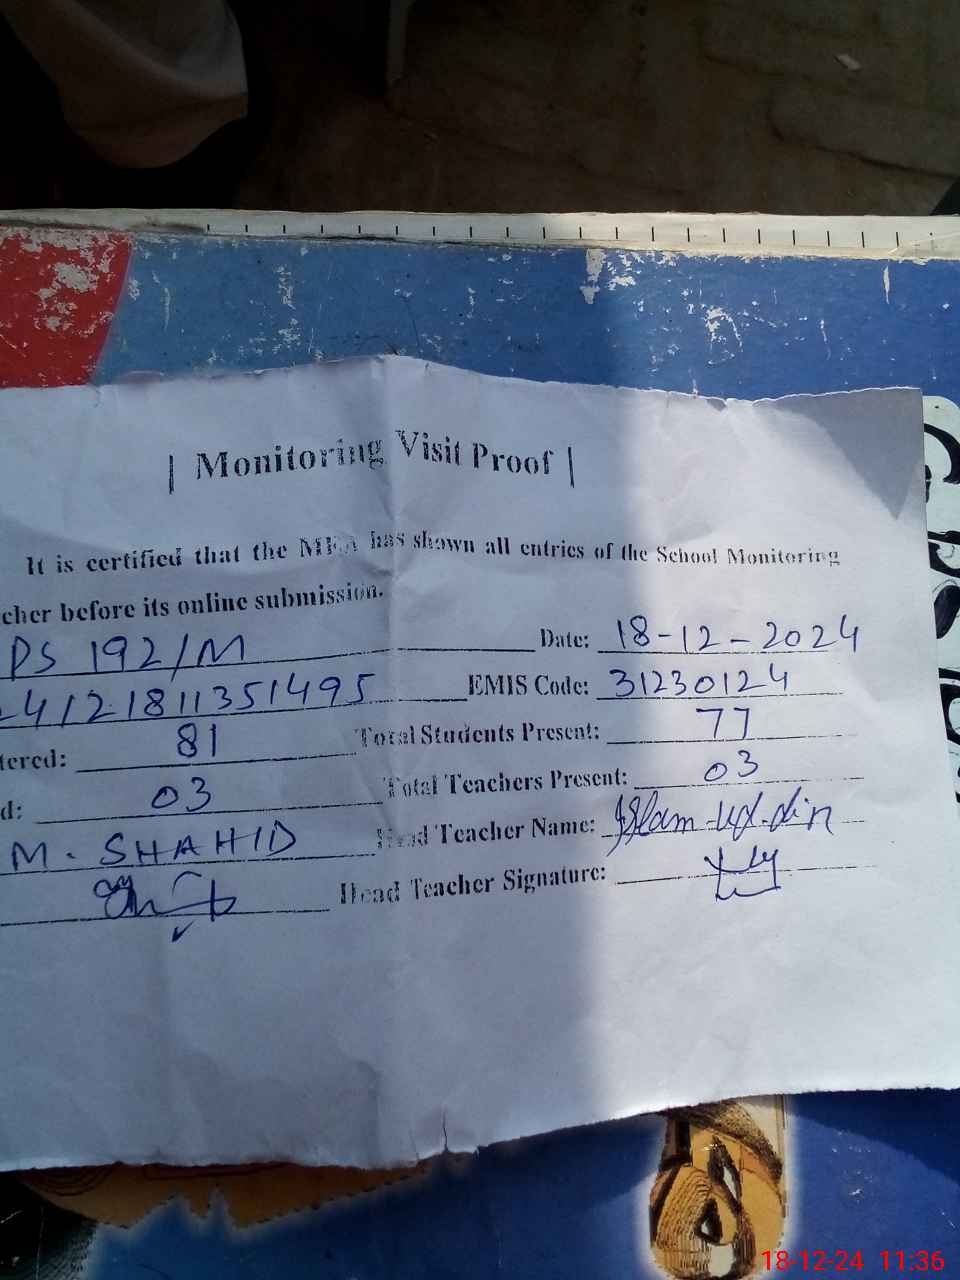 | Monitoring Visit Proof |
It is certified that the MEA has shown all entries of the School Monitoring
cher before its online submission.
PS 192/M Date: 18-12-2024
24121811351495 EMIS Code: 31230124
tered: 81 Total Students Present: 77
d: 03 Total Teachers Present: 03
M. SHAHID Head Teacher Name: Islam-ud-din
Head Teacher Signature:
18-12-24 11:36